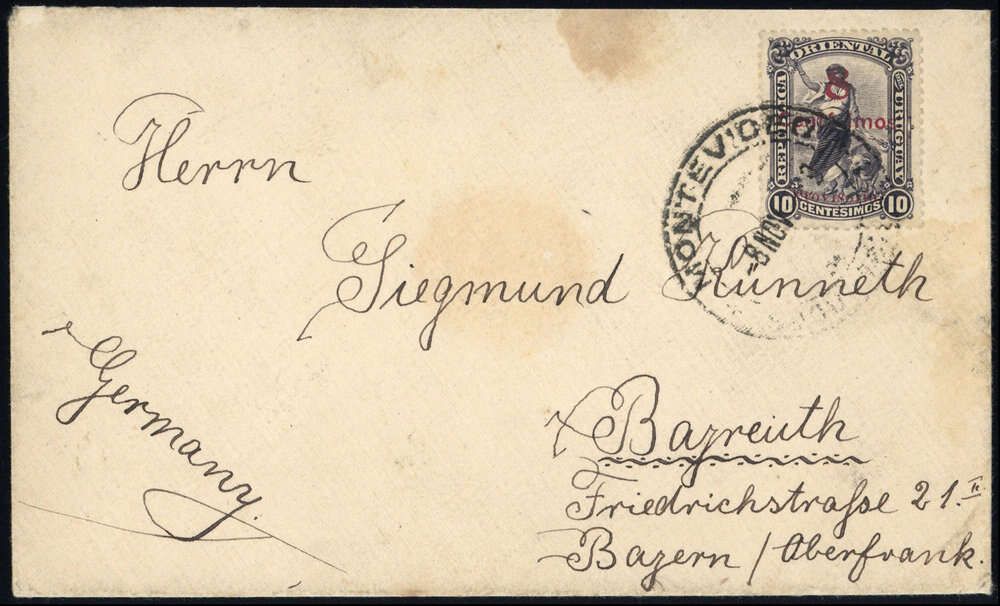 REPÚBLICA ORIENTAL DEL URUGUAY
8
centésimos
PROVISORIO
10 CENTESIMOS 10
MONTEVIDEO
8 NOV
Herrn
Siegmund Künneth
Germany.
Bayreuth
Friedrichstraſse 21 II
Bayern / Oberfrank.